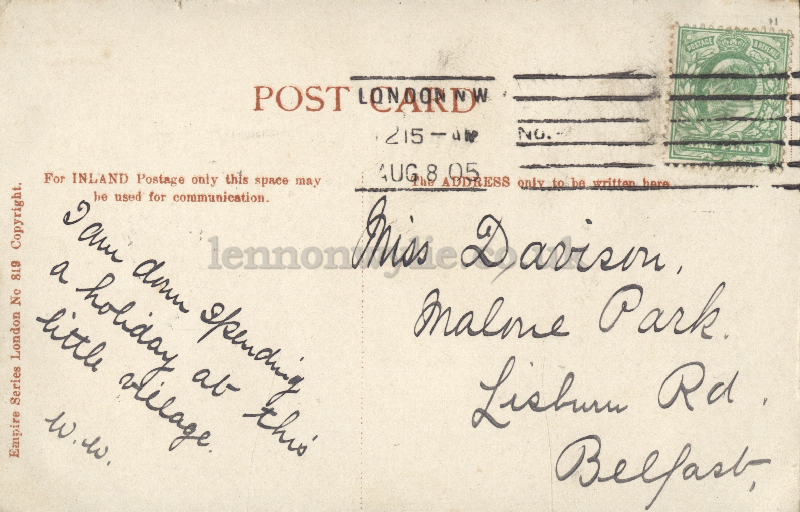 POST CARD
LONDON N.W
215 - AM
AUG 8 05
No.
POSTAGE REVENUE
HALFPENNY
For INLAND Postage only this space may
be used for communication.
The ADDRESS only to be written here
I am down spending
a holiday at this
little village.
W.W.
Miss Davison,
Malone Park.
Lisburn Rd.
Belfast,
Empire Series London No 819 Copyright.